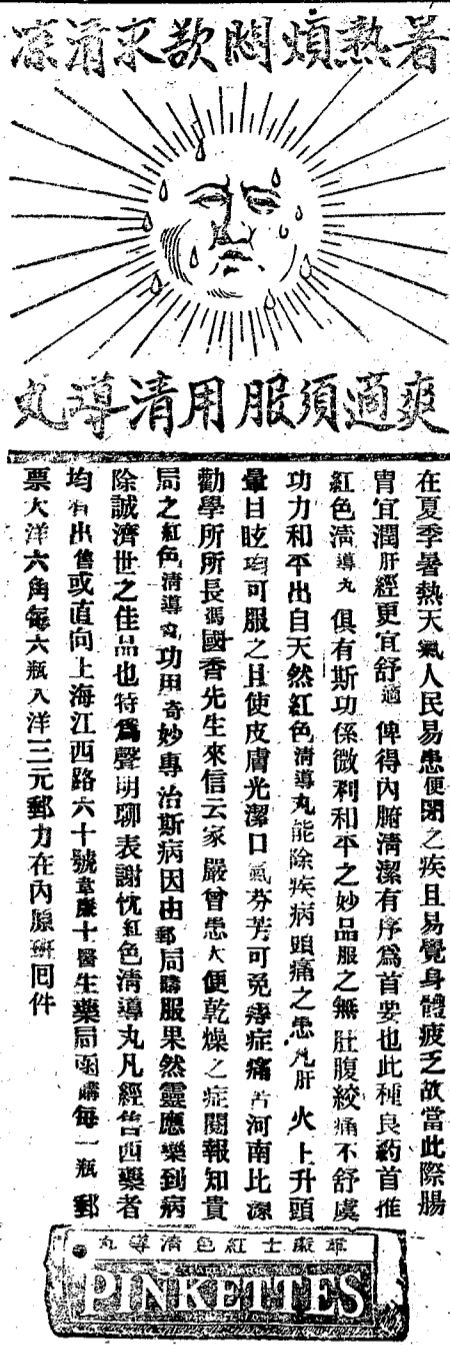 暑熱煩悶欲求清涼
爽適須服用清導丸
在夏季暑熱天氣人民易患便閉之疾且易覺身體疲乏故當此際腸
胃宜潤肝經更宜舒適 俾得內腑清潔有序爲首要也此種良葯首推
紅色淸導丸 俱有斯功係微利和平之妙品服之無肚腹絞痛不舒虞
功力和平出自天然紅色淸導丸能除疾病頭痛之患凡肝火上升頭
暈目眩均可服之且使皮膚光潔口氣芬芳可免痔症痛苦河南比源
勸學所所長馮國香先生來信云家嚴曾患大便乾燥之症閱報知貴
局之紅色淸導丸功用奇妙專治斯病因由郵局購服果然靈應藥到病
除誠濟世之佳品也特爲聲明聊表謝忱紅色淸導丸凡經售西藥者
均有出售或直向上海江西路六十號韋廉士醫生藥局函購每一瓶 郵
票大洋六角每六瓶大洋三元郵力在內原班囘件
韋廉士紅色淸導丸
PINKETTES